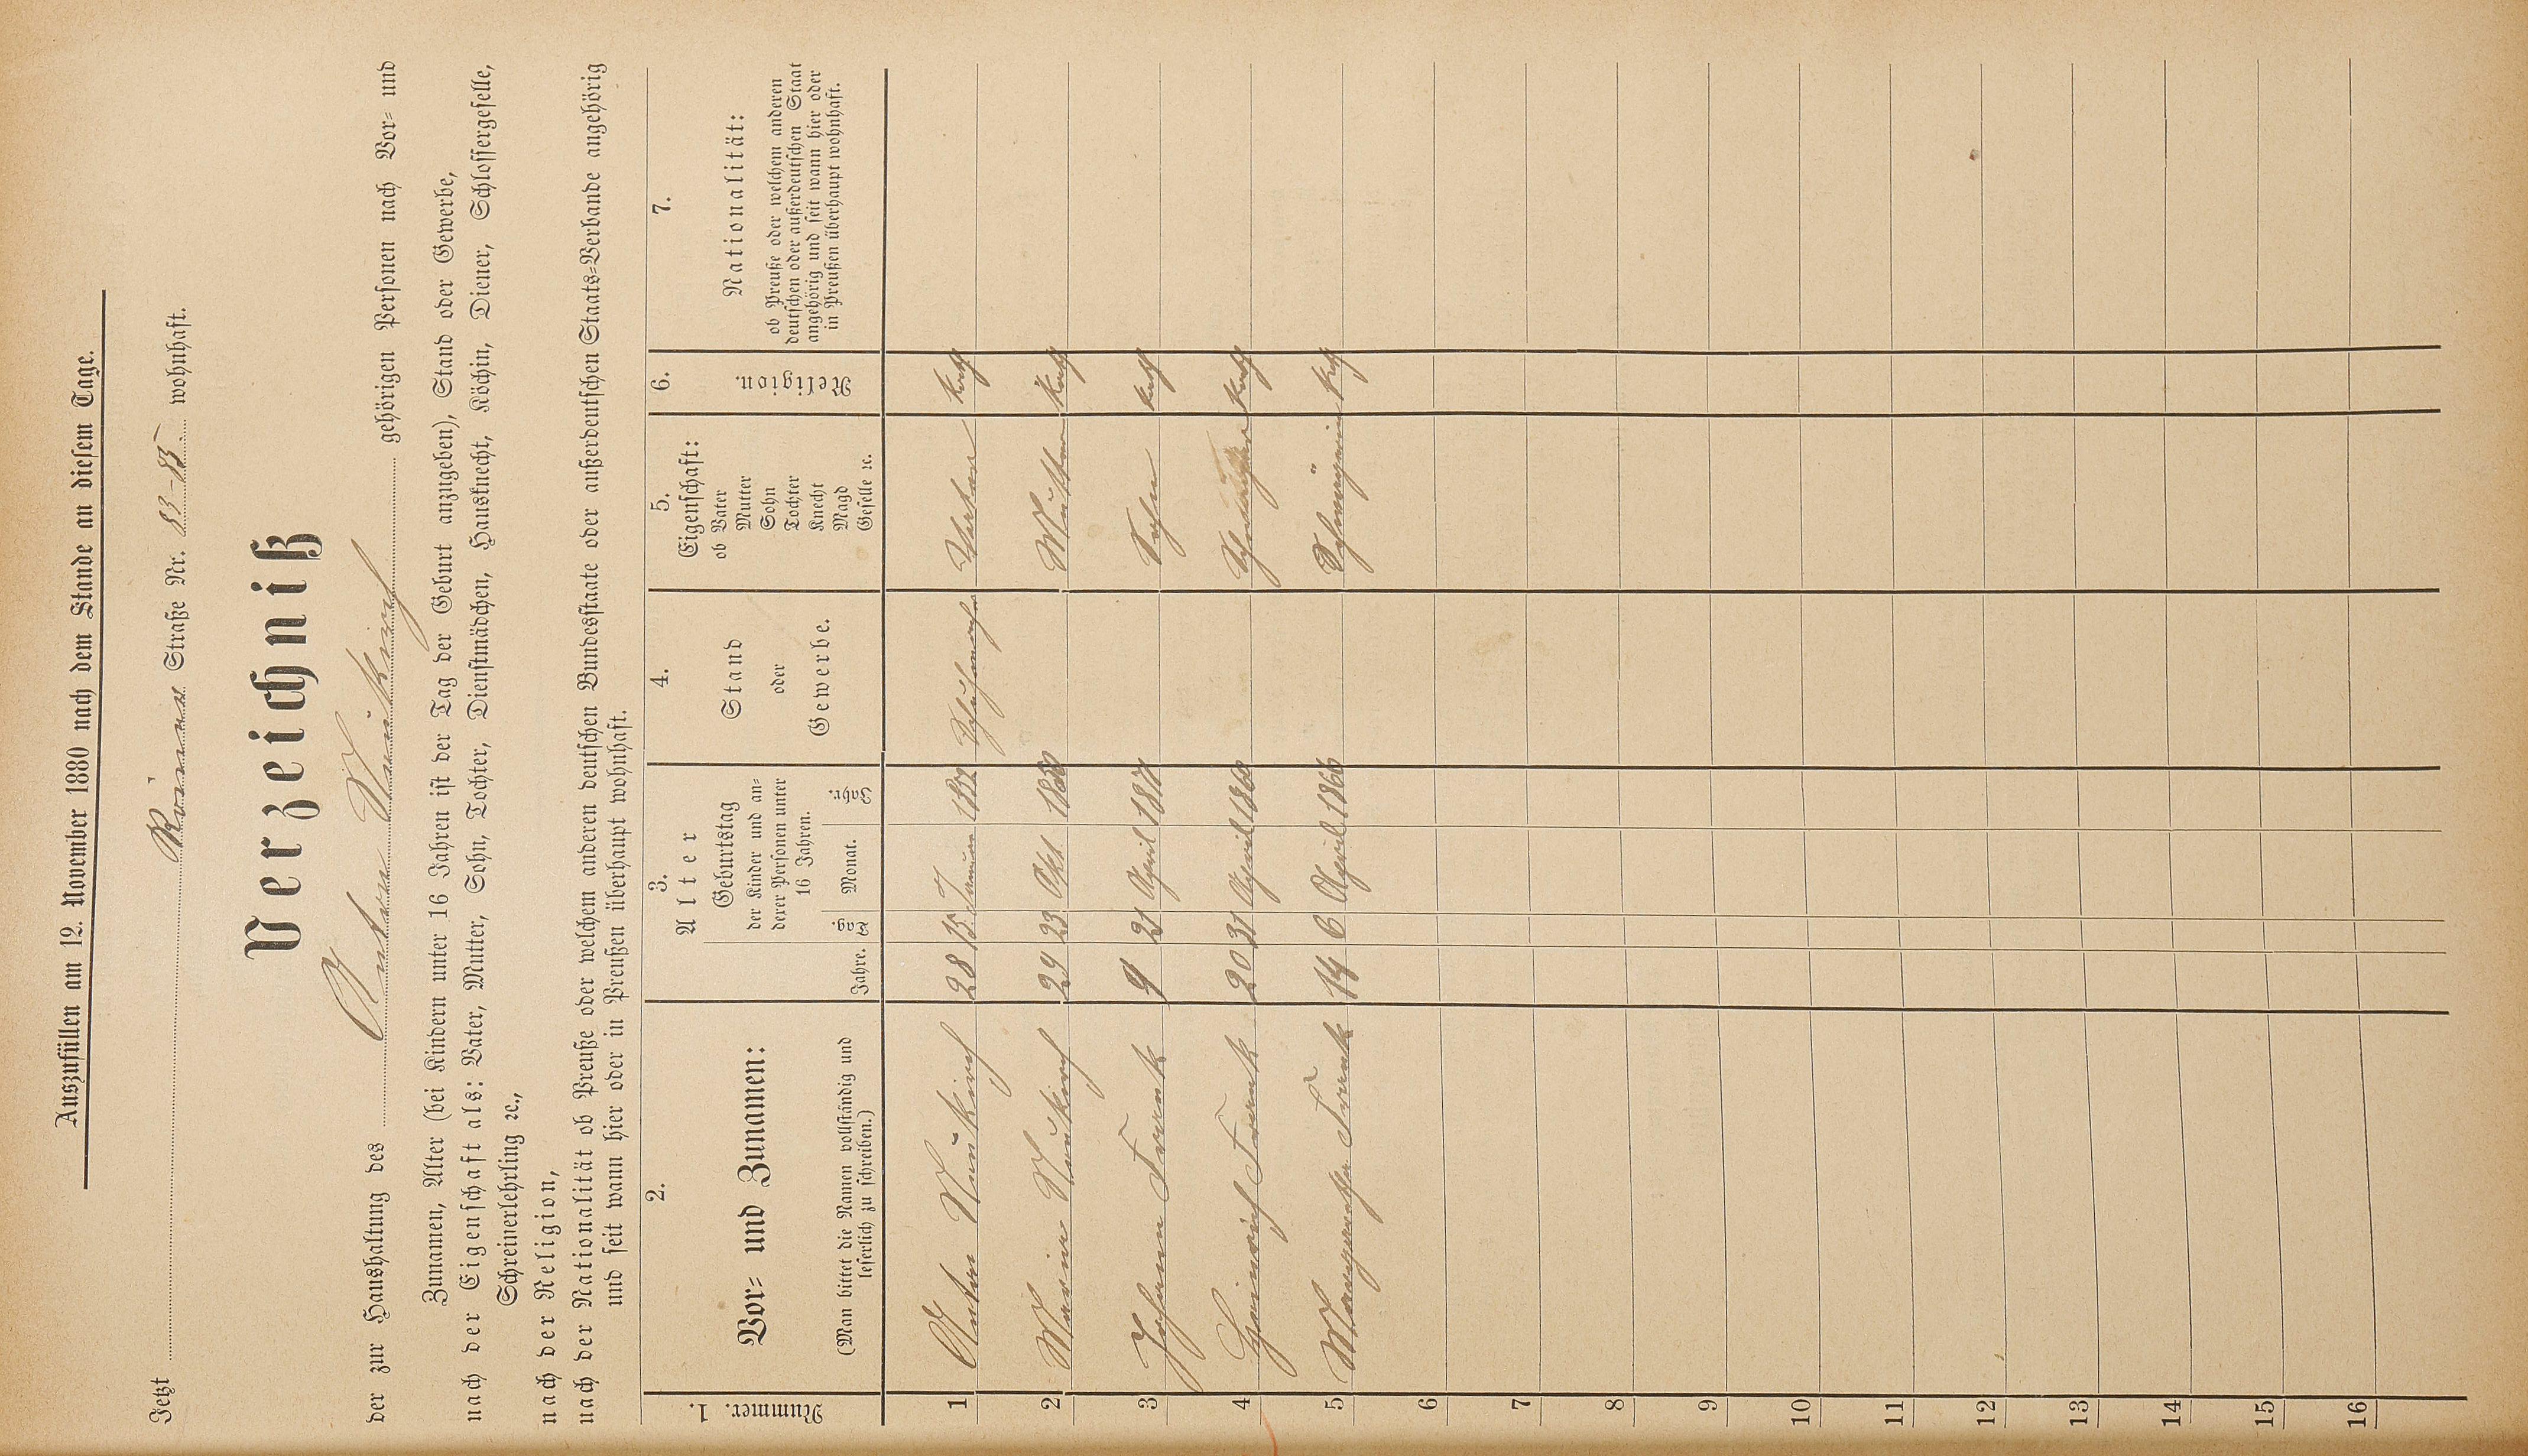 Auszufüllen am 12. November 1880 nach dem Stande an diesem Tage.
Jetzt Römer Straße Nr. 83-85. wohnhaft.
Verzeichniß
der zur Haushaltung des Anton Neukirch gehörigen Personen nach Vor- und
Zunamen, Alter (bei Kindern unter 16 Jahren ist der Tag der Geburt anzugeben), Stand oder Gewerbe,
nach der Eigenschaft als: Vater, Mutter, Sohn, Tochter, Dienstmädchen, Hausknecht, Köchin, Diener, Schlossergeselle,
Schreinerlehrling ꝛc.,
nach der Religion,
nach der Nationalität ob Preuße oder welchem anderen deutschen Bundesstaate oder außerdeutschen Staats-Verbande angehörig
und seit wann hier oder in Preußen überhaupt wohnhaft.
Nummer. 1.
2.
Vor- und Zunamen:
(Man bittet die Namen vollständig und
leserlich zu schreiben.)
3.
Alter
Jahre.
Geburtstag
der Kinder und an-
derer Personen unter
16 Jahren.
Tag.
Monat.
Jahr.
4.
Stand
oder
Gewerbe.
5.
Eigenschaft:
ob Vater
Mutter
Sohn
Tochter
Knecht
Magd
Geselle ꝛc.
6.
Religion.
7.
Nationalität:
ob Preuße oder welchem anderen
deutschen oder außerdeutschen Staat
angehörig und seit wann hier oder
in Preußen überhaupt wohnhaft.
1 Anton Neukirch 28 15 Januar 1852 Schuhmacher Vater Kath
2 Maria Neukirch 29 23 Okt Mutter Kath
3 Johann Frank 9 21 April 1871 Sohn Kath
4 Heinrich Frank 20 31 April 1860 Schwager Kath
5 Margaretha Frank 14 6 April 1866 Schwägerin Kath
6
7
8
9
10
11
12
13
14
15
16